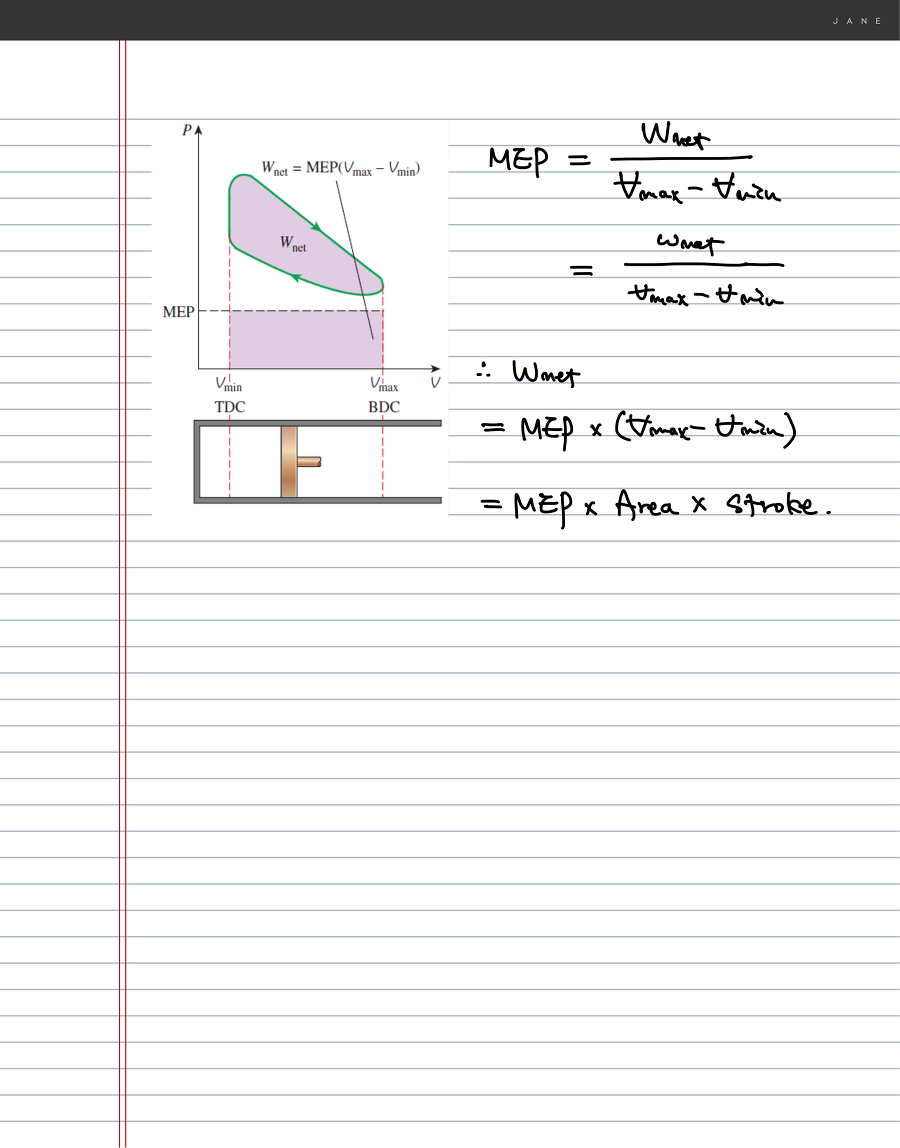 JANE
P
W_net = MEP(V_max − V_min)
W_net
MEP
V_min V_max V
TDC BDC
MEP = W_net / (V_max − V_min)
= w_net / (v_max − v_min)
∴ W_net
= MEP × (V_max − V_min)
= MEP × Area × Stroke.